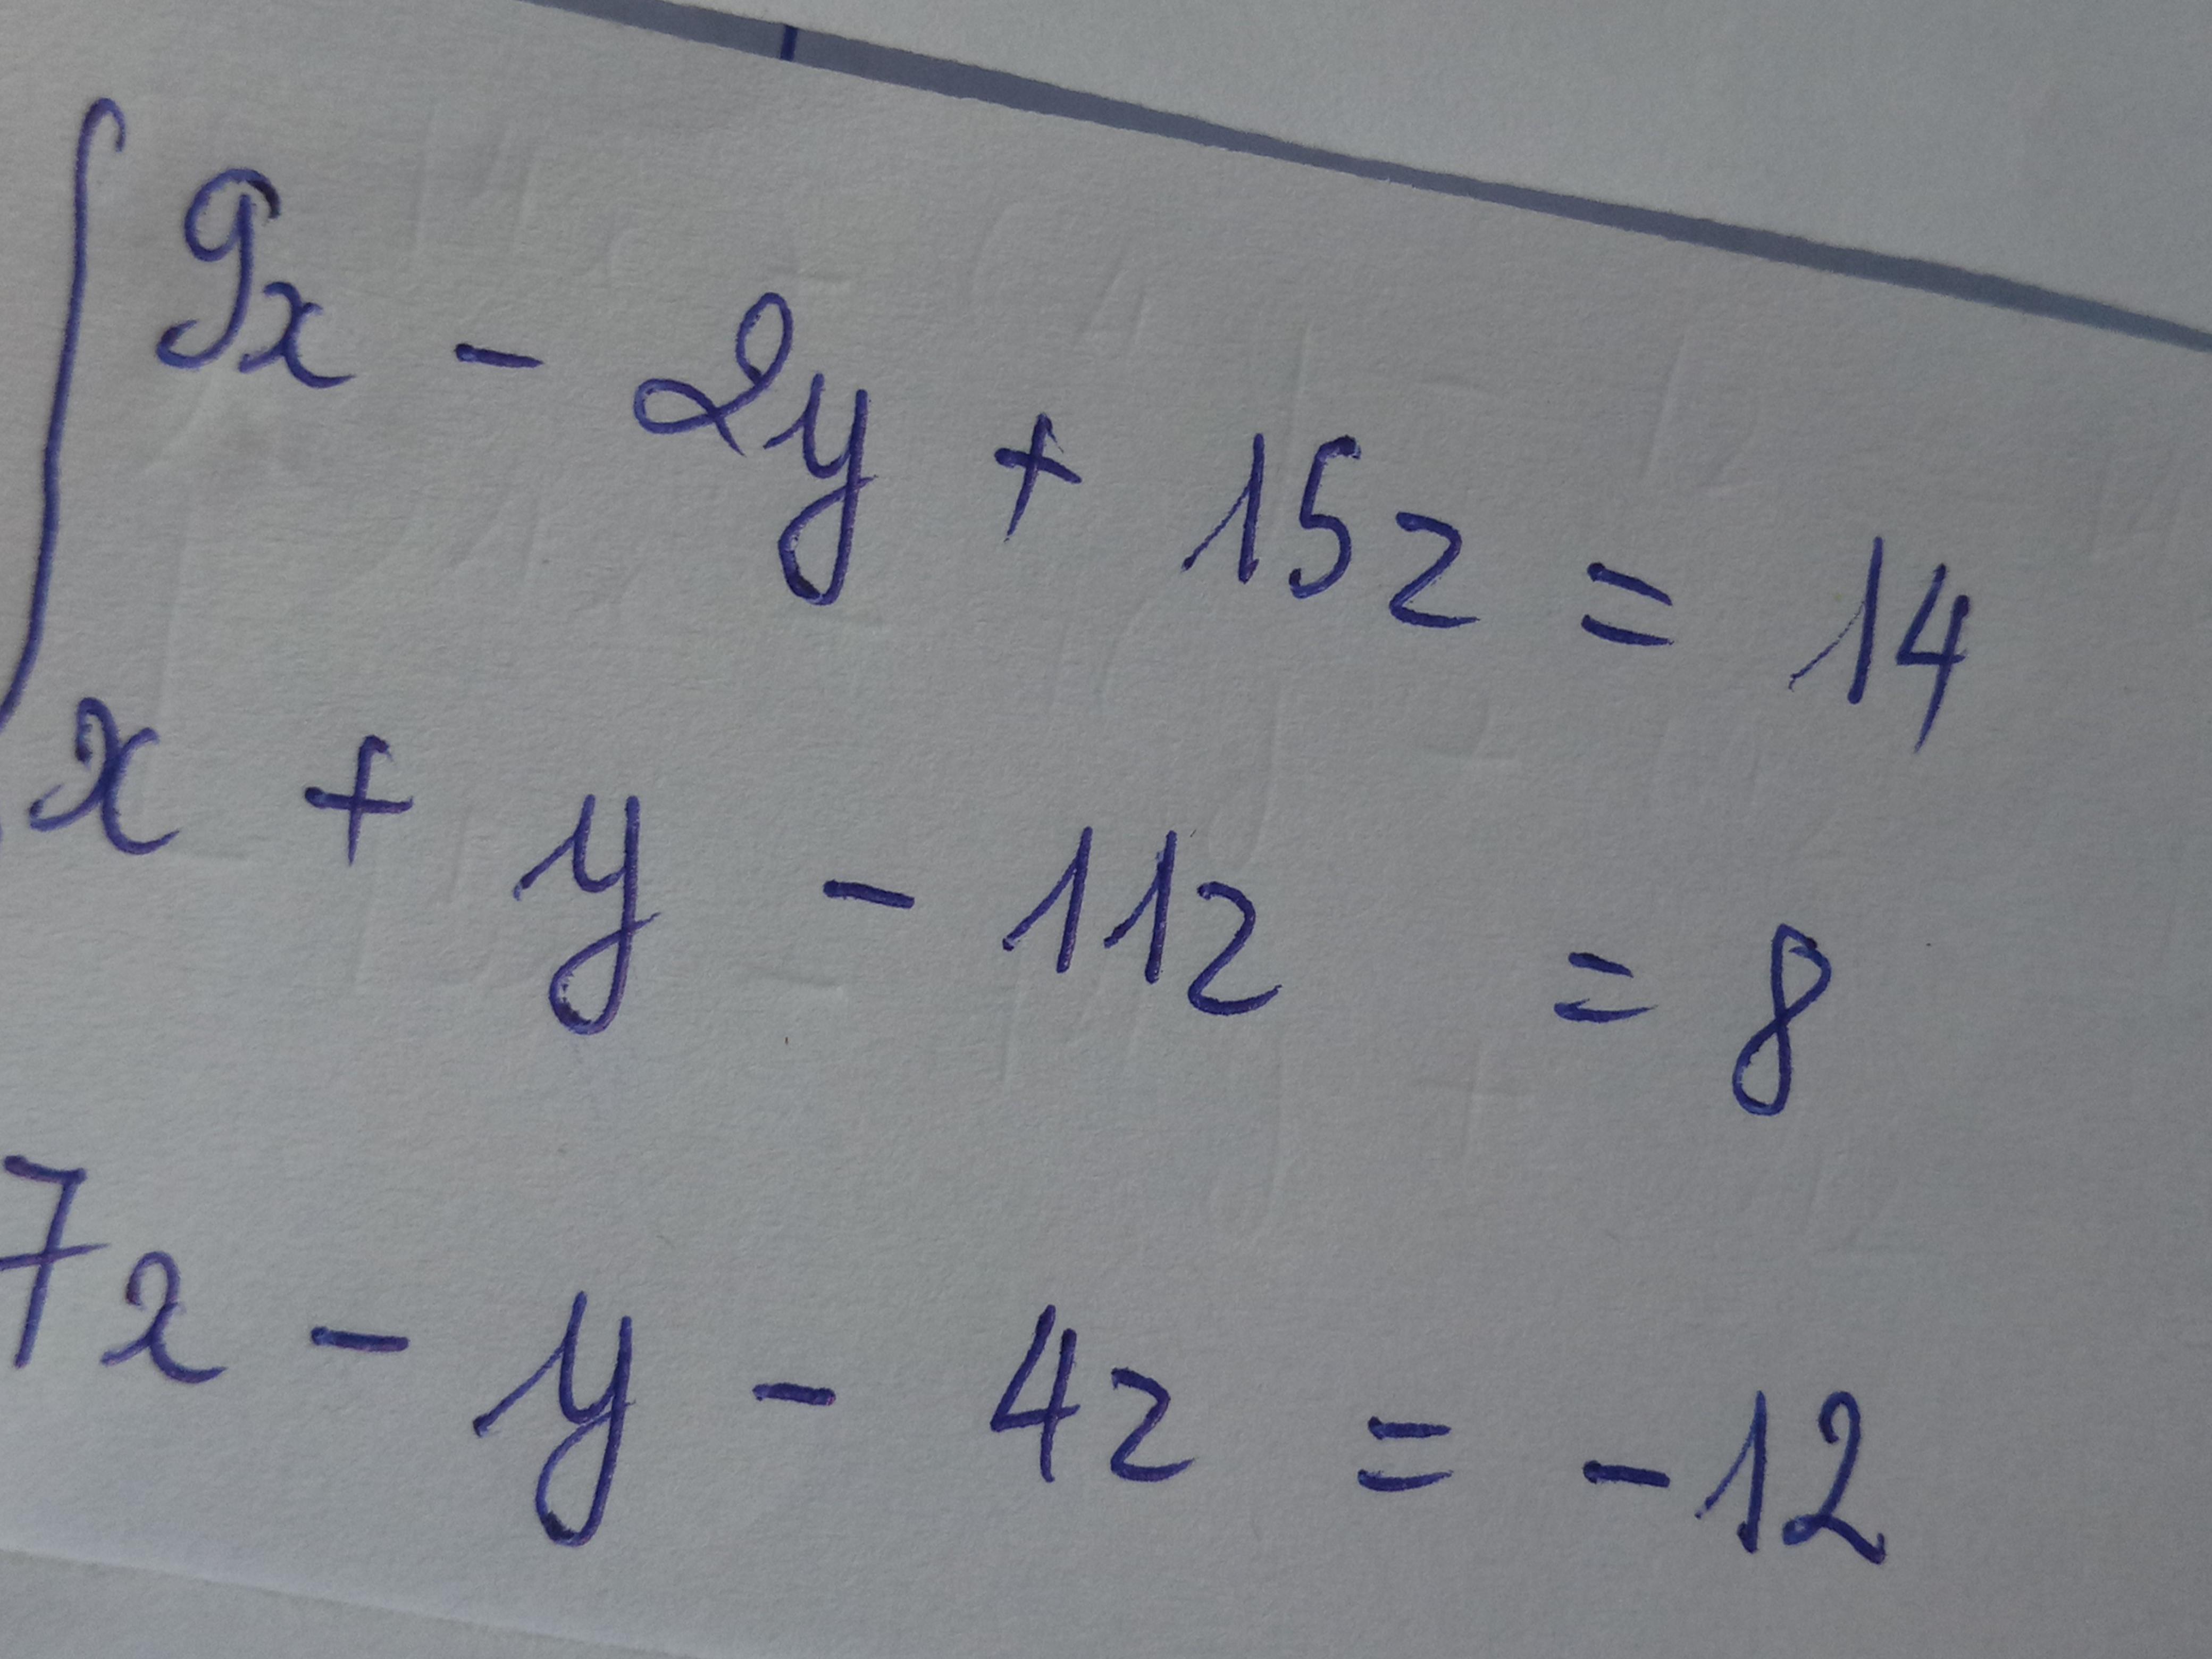 9x - 2y + 15z = 14
x + y - 11z = 8
7x - y - 4z = -12